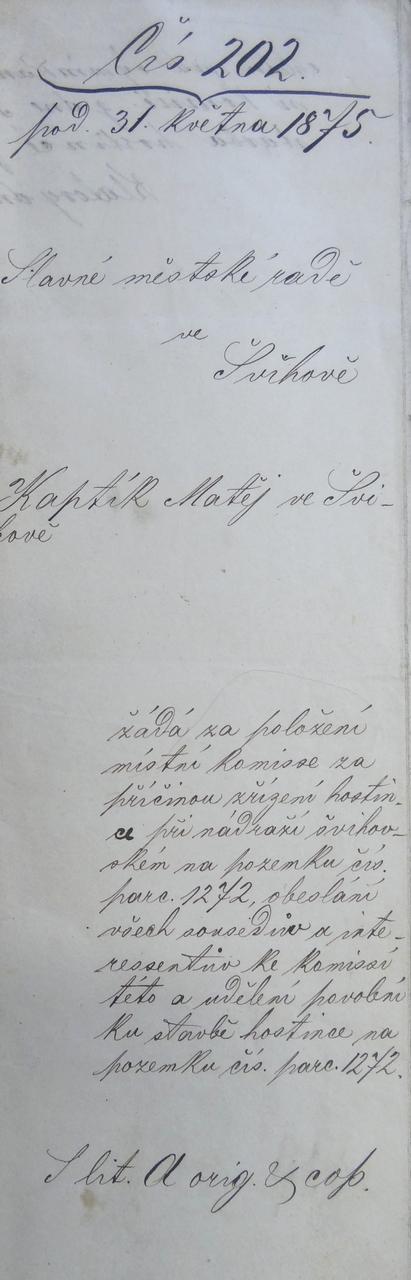 Čís 202.
pod. 31. května 1875.
Slavné městské radě
ve
Švihově
Kaptík Matěj ve Švi-
hově
žádá za položení
místní komisse za
příčinou zřízení hostin-
ce při nádraží švihov-
ském na pozemku čís.
parc. 1272, obeslání
všech sousedův a inte-
ressentův ke komissi
této a udělení povolení
ku stavbě hostince na
pozemku čís. parc. 1272.
S lit. A orig. & cop.